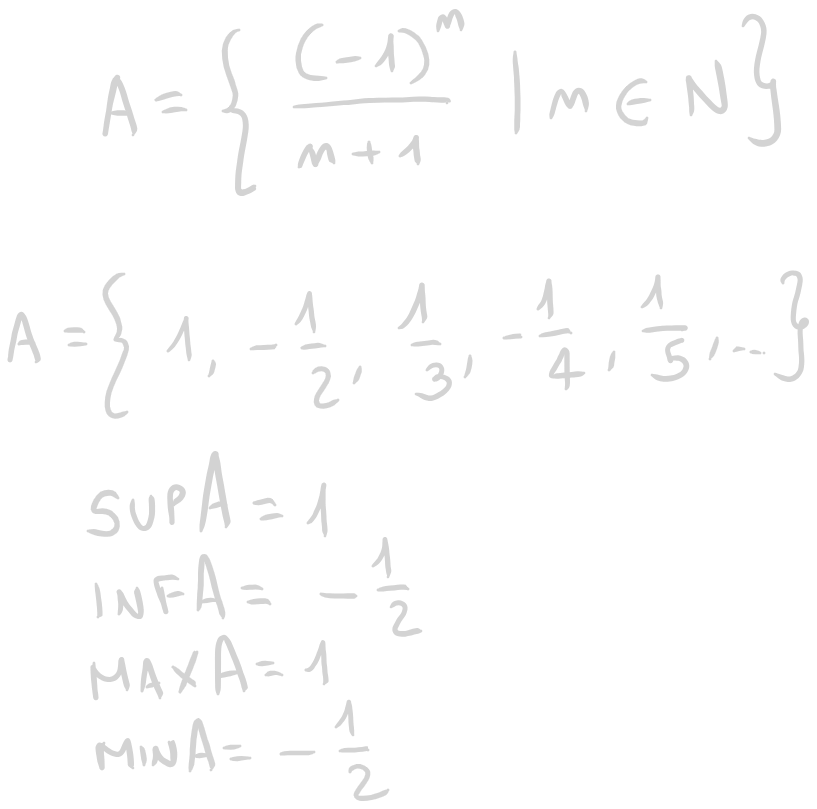 A = { (-1)^n / n+1 | n ∈ N }
A = { 1, -1/2, 1/3, -1/4, 1/5, ... }
SUP A = 1
INF A = -1/2
MAX A = 1
MIN A = -1/2